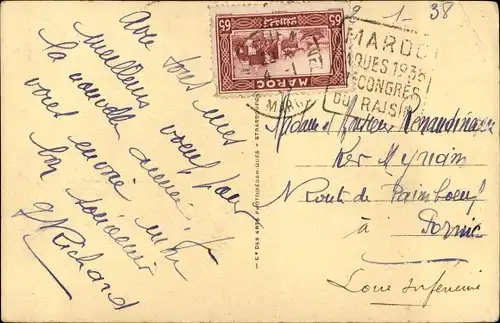 Avec tous mes
meilleurs voeux pour
la nouvelle année
vous envoie mon
bon souvenir
Richard
65 65
MAROC
2 - 1 - 38
MAROC
PÂQUES 1938
CONGRÈS
DU RAISIN
MAROC
Madame et Monsieur
Ker Myriam
Route de Paimboeuf
à Pornic
Loire Inférieure
Cie DES ARTS PHOTOMÉCANIQUES - STRASBOURG